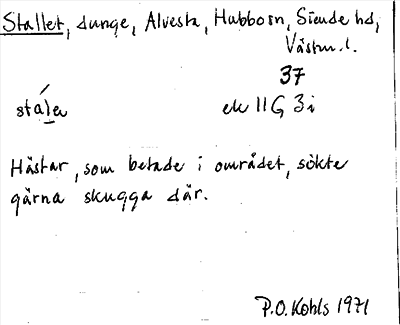 Stallet, dunge, Alvesta, Hubborn, Siende hd,
Västm. l.
37
stálεn
ek 11G 3i
Hästar, som betade i området, sökte
gärna skugga där.
P.O. Kohls 1971